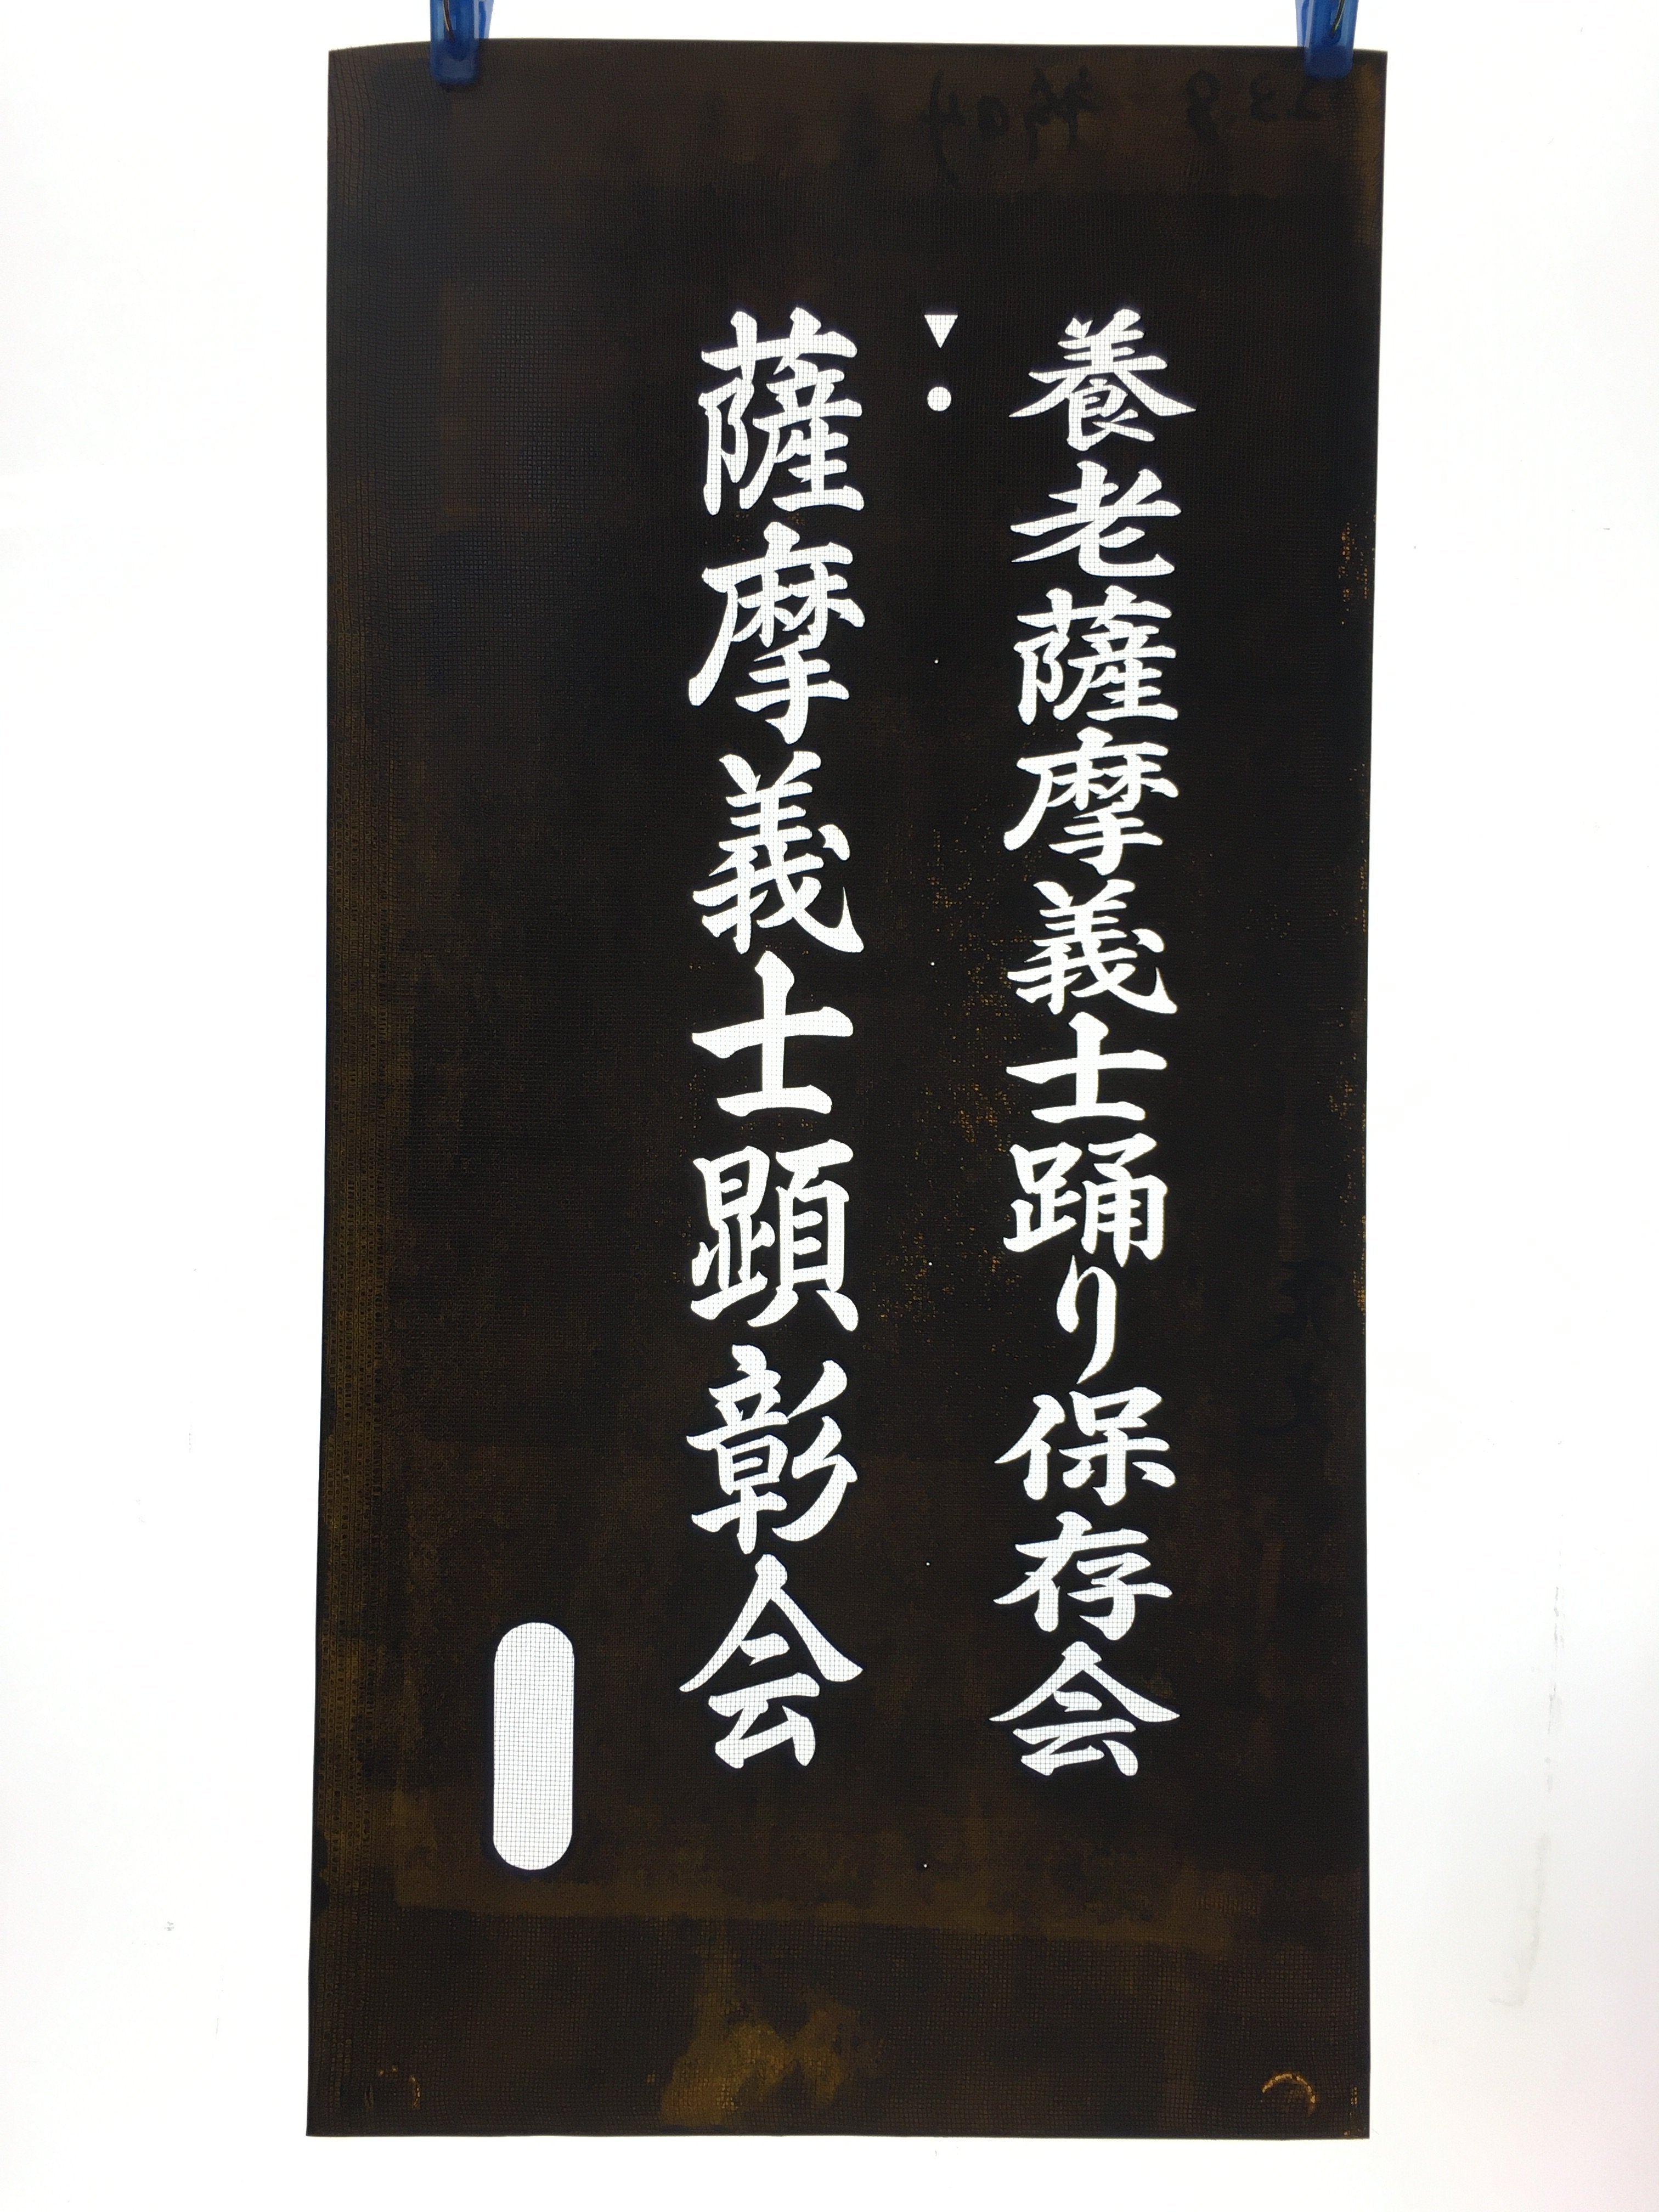 養老薩摩義士踊り保存会
薩摩義士顕彰会